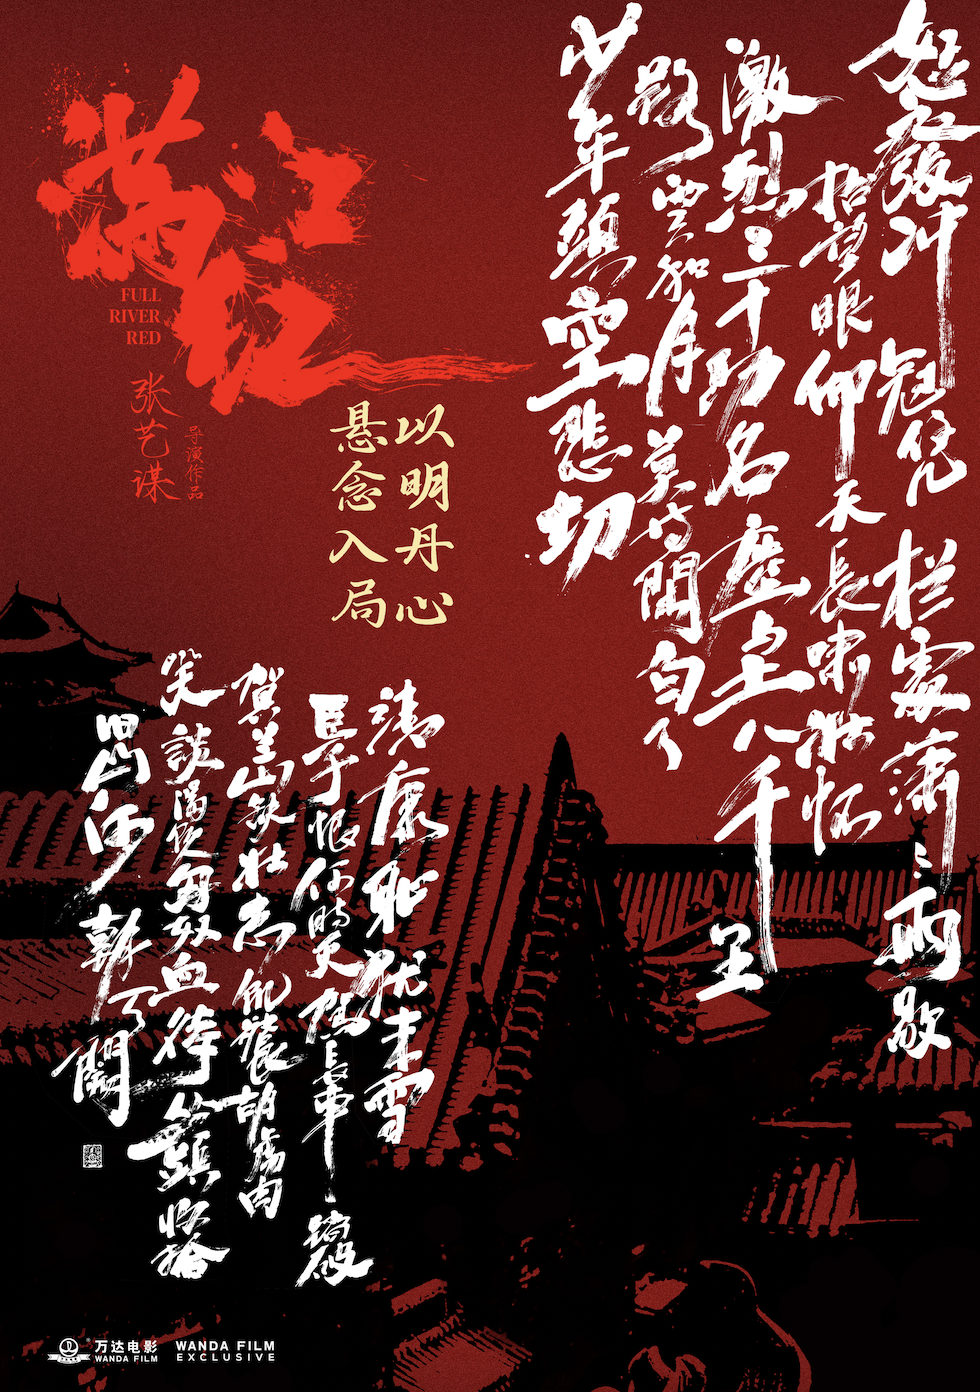 满江红
FULL
RIVER
RED
张艺谋
导演作品
以明丹心
悬念入局
怒髮冲冠凭栏處潇潇雨歇
抬望眼仰天長啸壯怀
激烈三十功名塵与土八千里
路雲和月莫等閒白了
少年頭空悲切
靖康恥犹未雪
臣子恨何時灭驾長車踏破
賀兰山缺壯志飢餐胡虜肉
笑談渴饮匈奴血待從頭收拾
旧山河朝天闕
万达电影
WANDA FILM
WANDA FILM
EXCLUSIVE